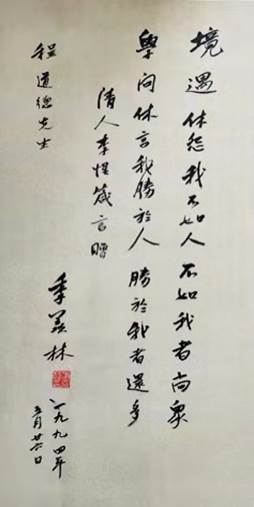 境遇休怨我不如人不如我者尚眾
學問休言我勝於人勝於我者還多
清人李惺箴言贈
程道德先生
季羨林
一九九四年
五月廿六日